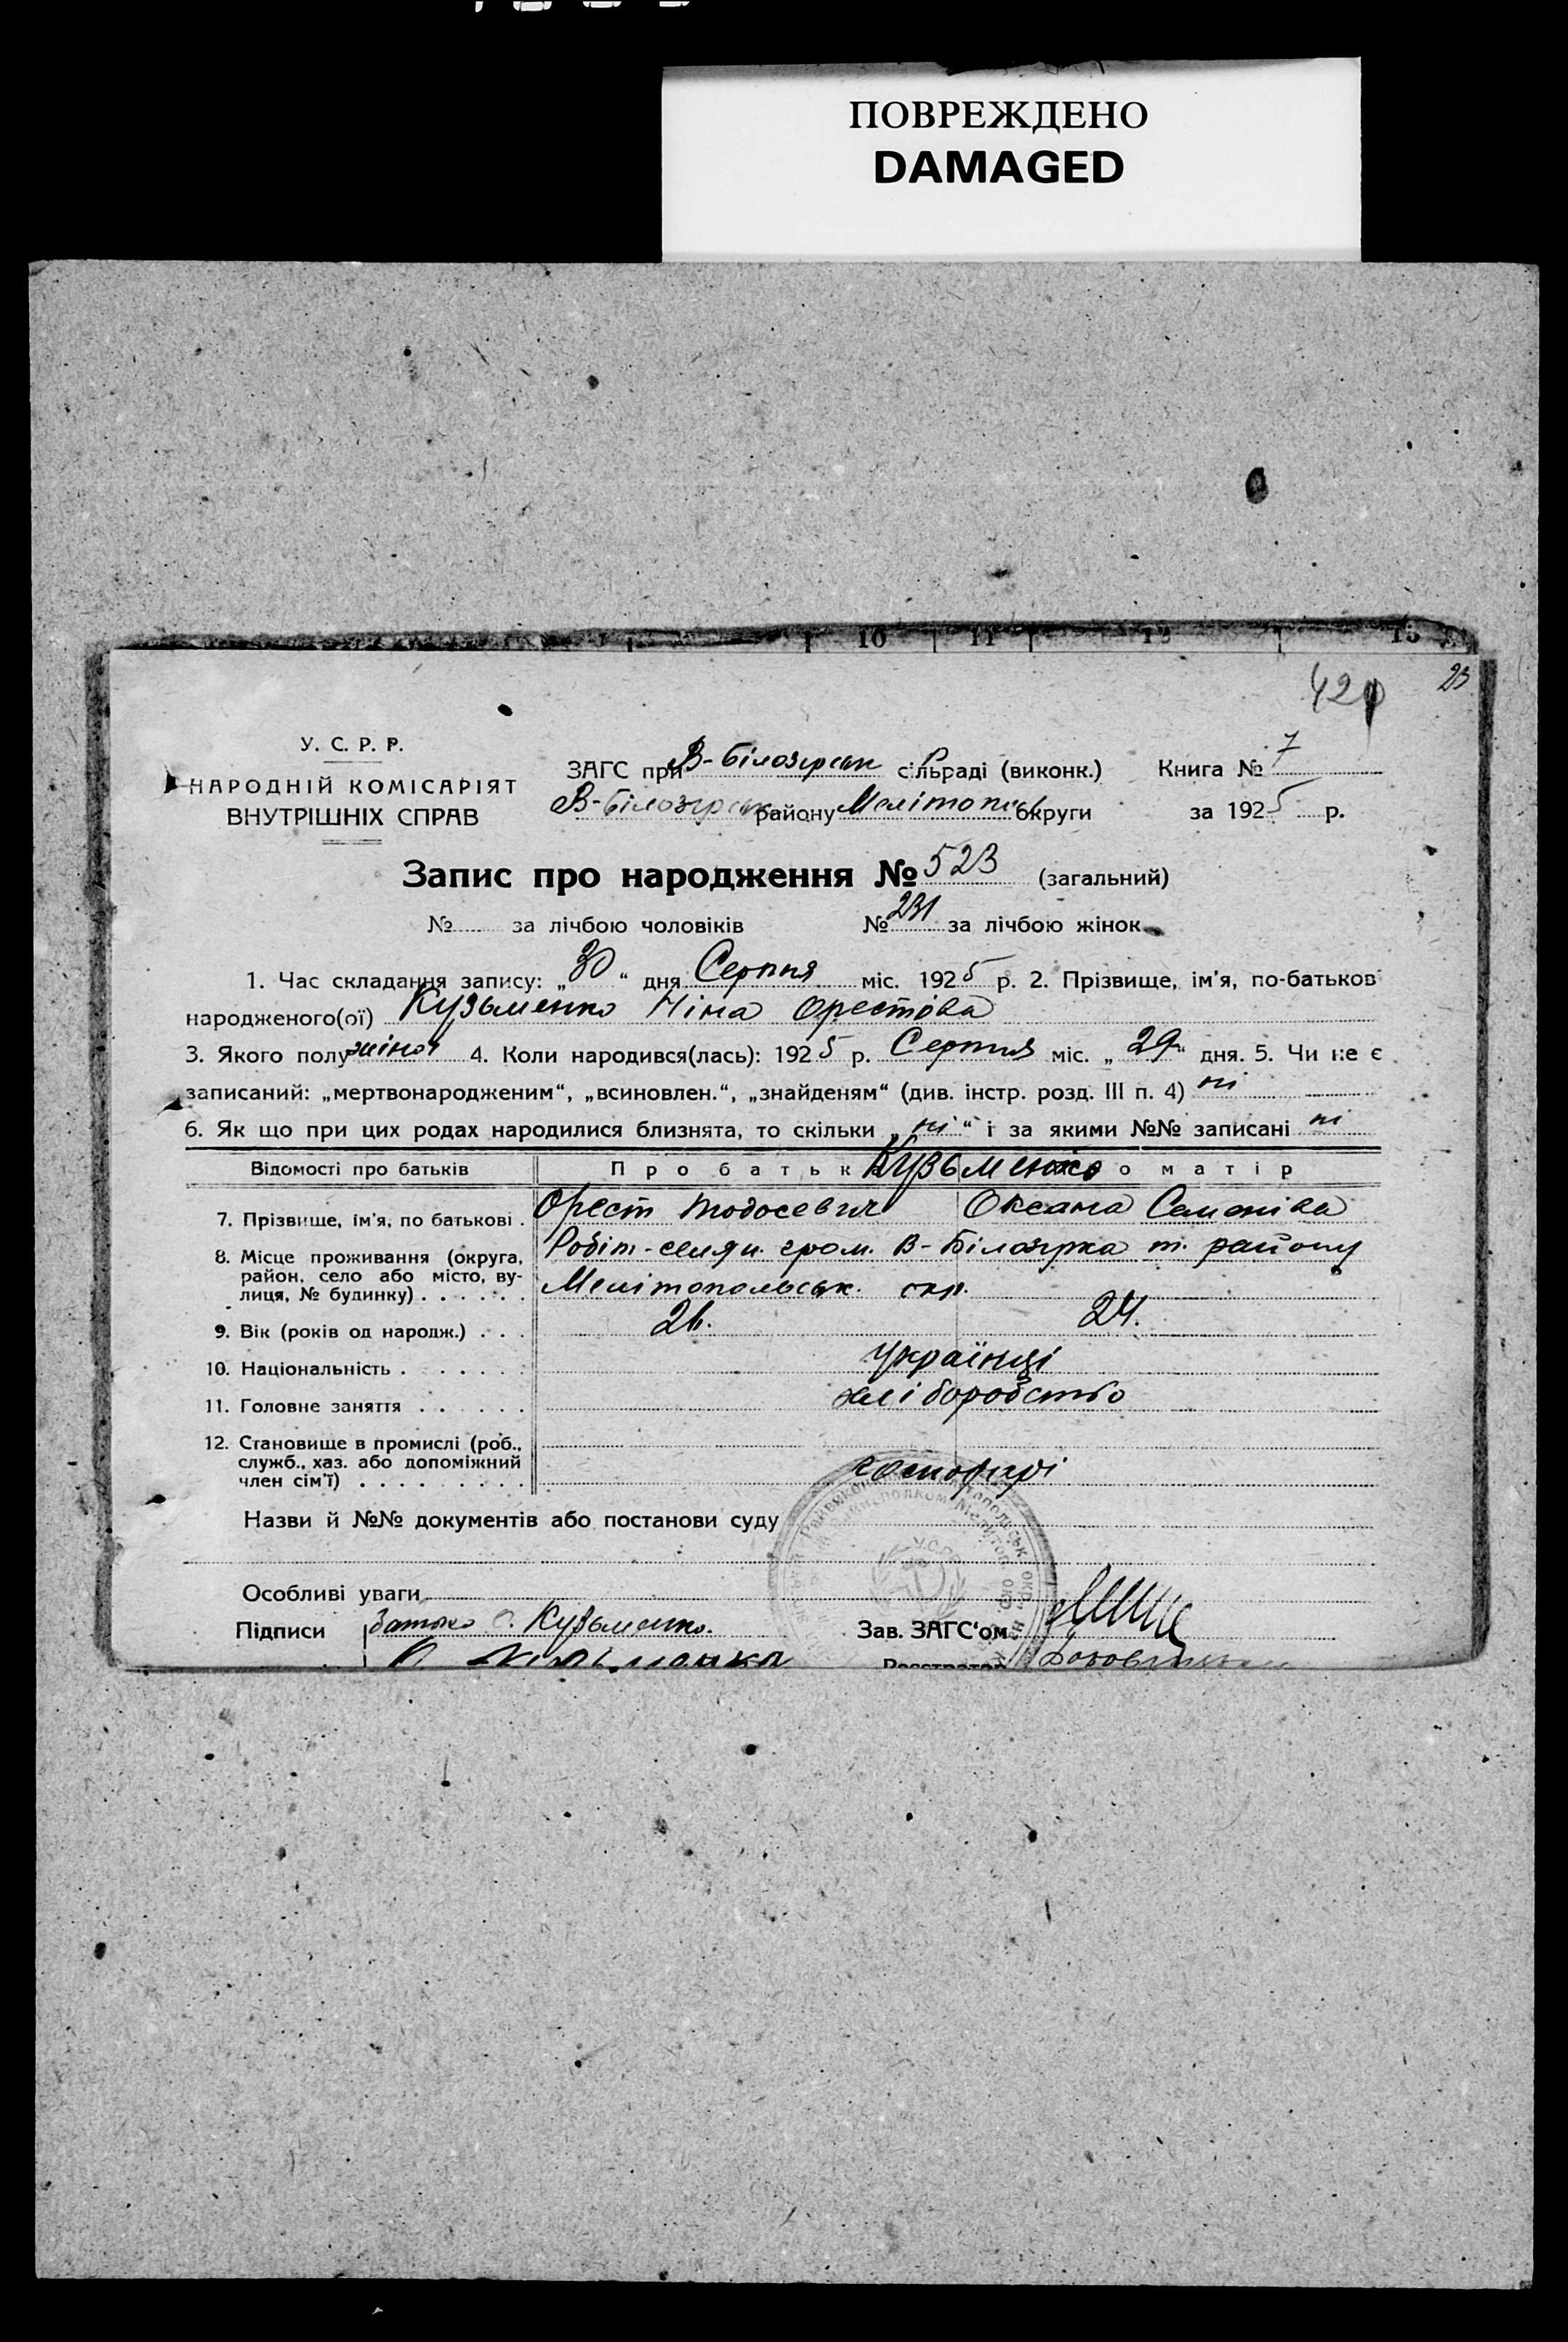 ПОВРЕЖДЕНО
DAMAGED
10 11 12 13
42
23
У. С. Р. Р.
НАРОДНІЙ КОМІСАРІЯТ
ВНУТРІШНІХ СПРАВ
ЗАГС при В-Білозірськ сільраді (виконк.) Книга № 7
В-Білозірськ району Мелітопільськ округи за 1925 р.
Запис про народження № 523 (загальний)
№ за лічбою чоловіків № 231 за лічбою жінок
1. Час складання запису: „30“ дня Серпня міс. 1925 р. 2. Прізвище, ім'я, по-батькові
народженого(ої) Кузьменко Ніна Орестова
3. Якого полу жіноч 4. Коли народився(лась): 1925 р. Серпня міс. „29“ дня. 5. Чи не є
записаний: „мертвонародженим“, „всиновлен.“, „знайденям“ (див. інстр. розд. III п. 4) ні
6. Як що при цих родах народилися близнята, то скільки „ні“ і за якими №№ записані ні
Відомості про батьків Про батька Кузьменко Про матір
7. Прізвище, ім'я, по батькові . Орест Тодосевич Оксана Семенівa
8. Місце проживання (округа, Робіт-селян. гром. В-Білозірка т. району
район, село або місто, ву-
лиця, № будинку) . . . . . . Мелітопольськ. окр.
9. Вік (років од народж.) . . . 26. 24.
10. Національність . . . . . . Українці
11. Головне заняття . . . . . . хліборобство
12. Становище в промислі (роб.,
служб., хаз. або допоміжний
член сім'ї) . . . . . . . . . господарі
Назви й №№ документів або постанови суду
Особливі уваги
Підписи Батько О. Кузьменко. Зав. ЗАГС'ом
Реєстратор